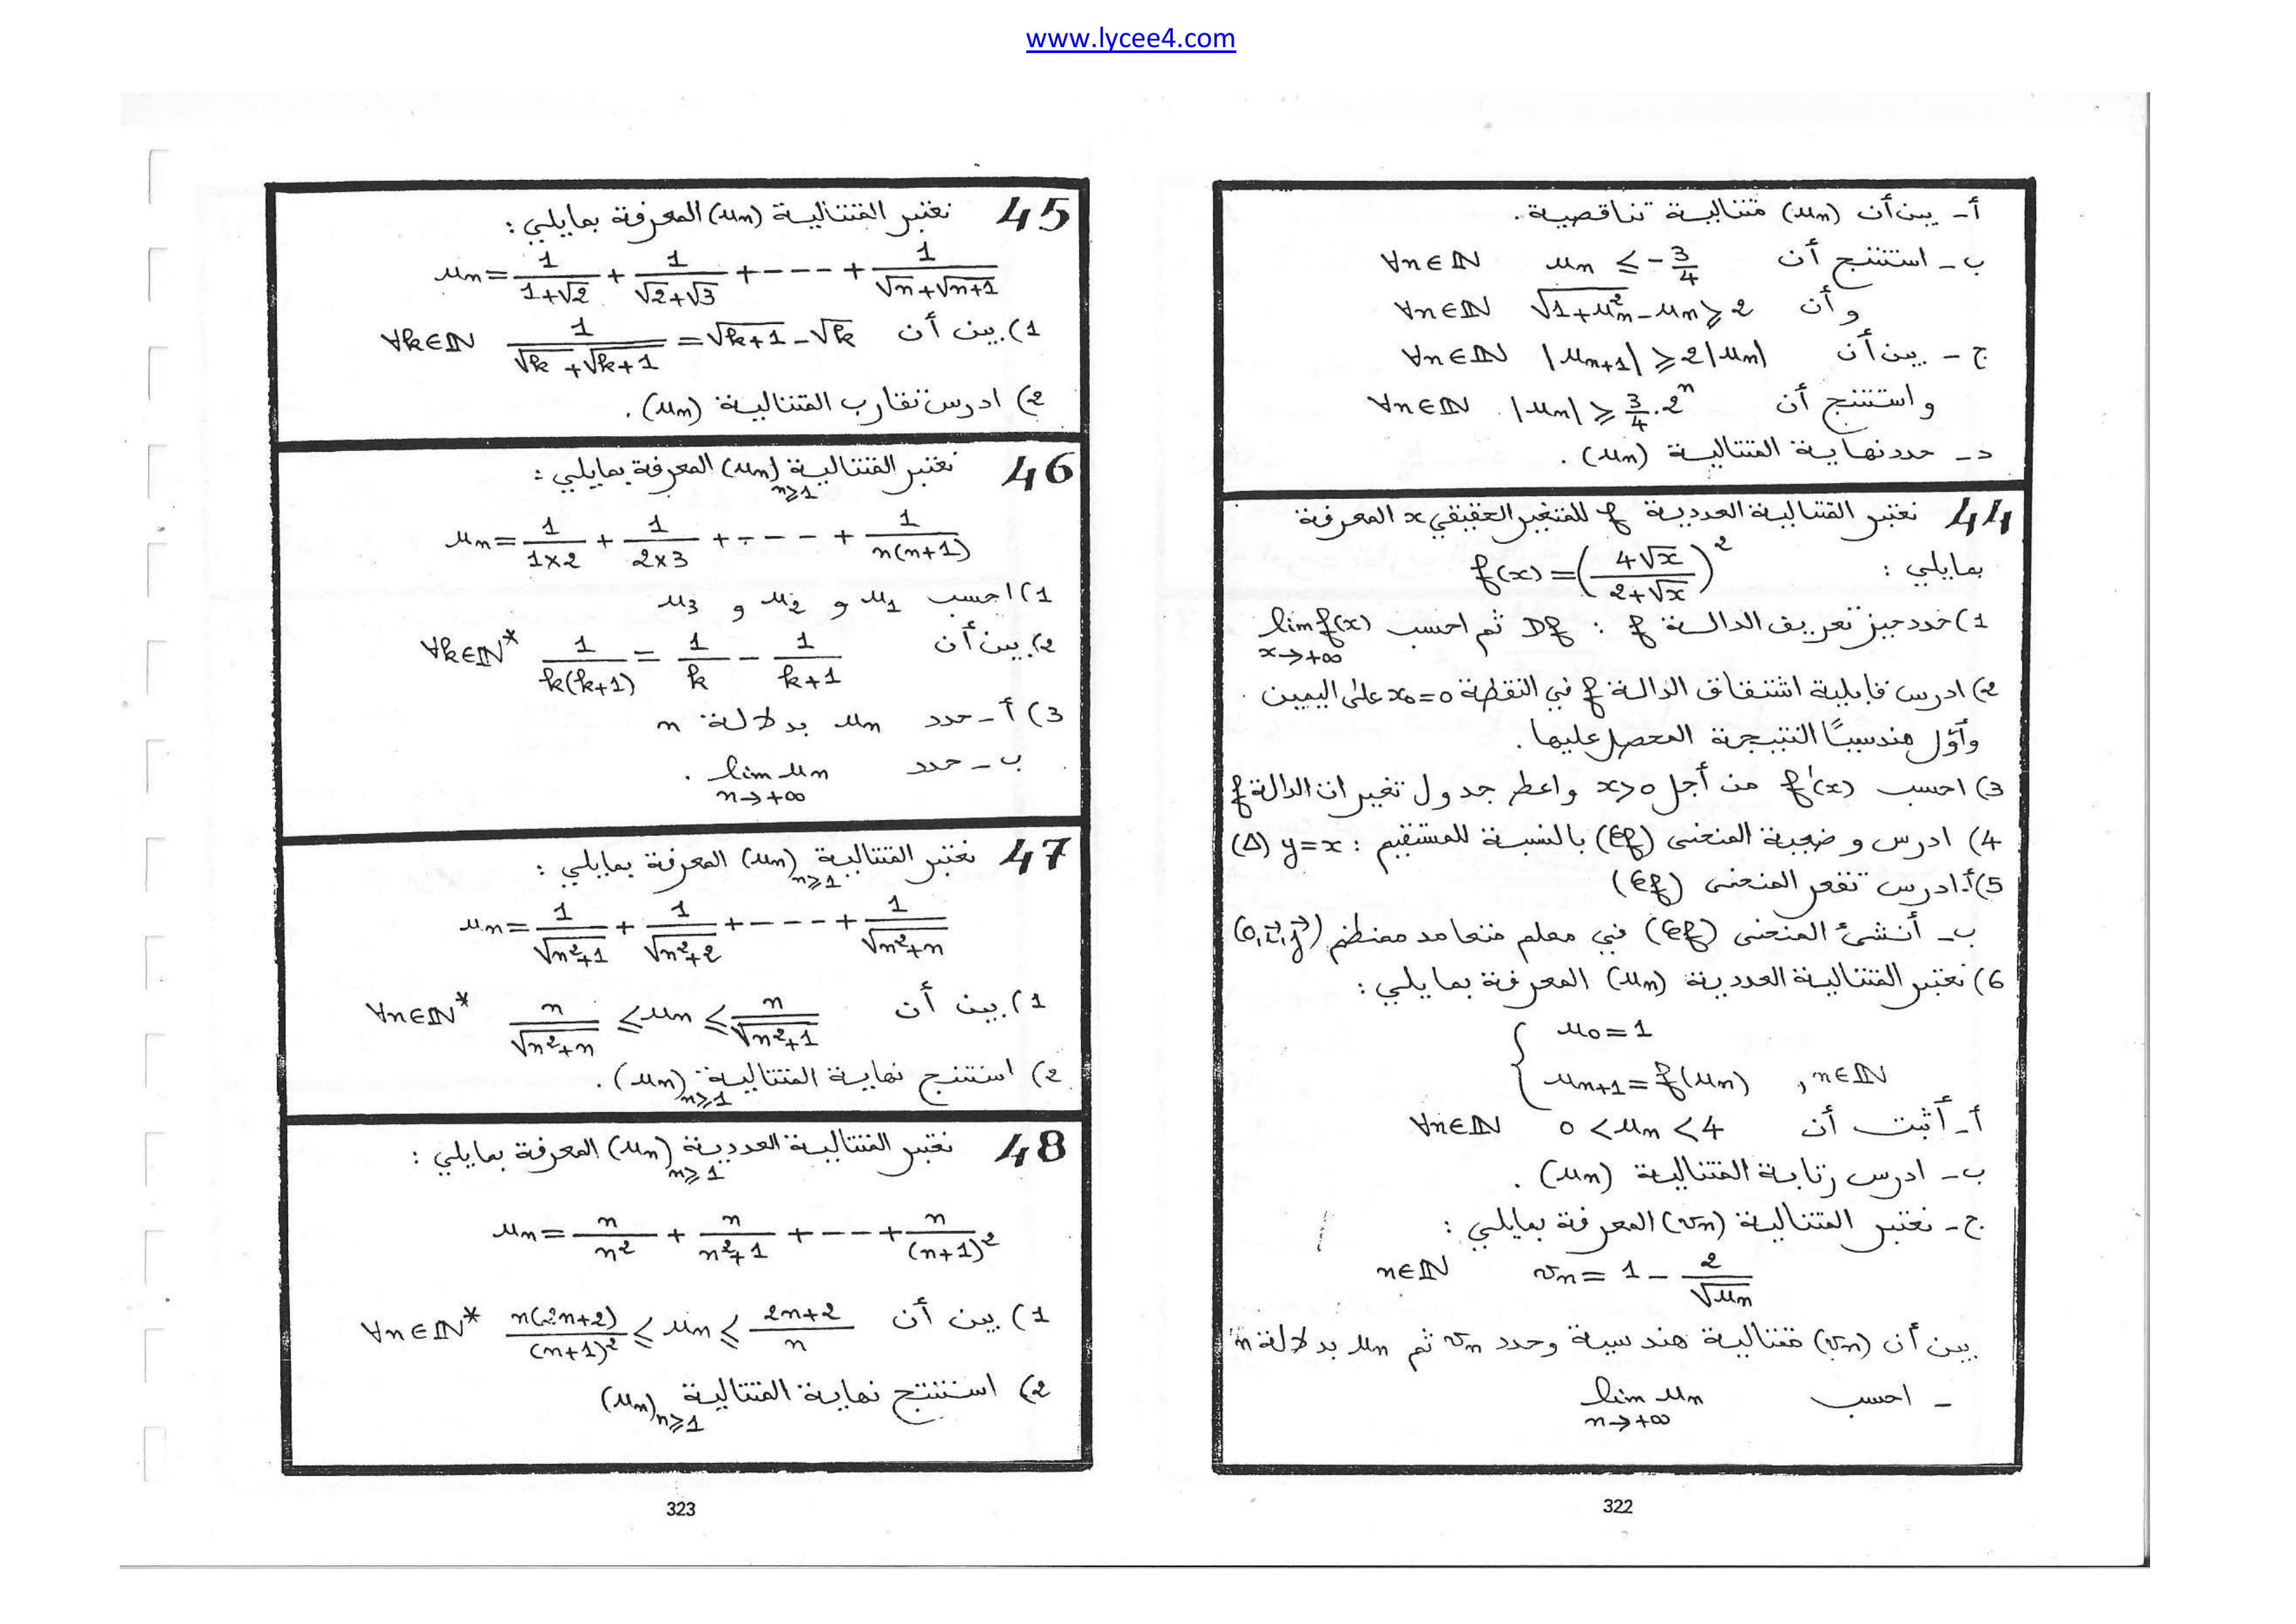 www.lycee4.com
أ- بين أن (un) متتالية تناقصية.
ب- استنتج أن un ≤ -3/4 ∀n∈ℕ
وأن √(1+un²) - un ≥ 2 ∀n∈ℕ
ج- بين أن |un+1| ≥ 2|un| ∀n∈ℕ
واستنتج أن |un| ≥ 3/4 . 2^n ∀n∈ℕ
د- حدد نهاية المتتالية (un).
44 نعتبر المتتالية العددية f للمتغير الحقيقي x المعرفة
بمايلي : f(x) = (4√x / (2+√x))²
1) حدد حيز تعريف الدالة f : Df ثم احسب lim f(x) x→+∞
2) ادرس قابلية اشتقاق الدالة f في النقطة x0=0 على اليمين
وأول هندسيًا النتيجة المحصل عليها.
3) احسب f'(x) من أجل x>0 واعط جدول تغيرات الدالة f
4) ادرس وضعية المنحنى (Cf) بالنسبة للمستقيم : y=x (Δ)
5) أ- ادرس تقعر المنحنى (Cf)
ب- أنشئ المنحنى (Cf) في معلم متعامد ممنظم (o,i⃗,j⃗)
6) نعتبر المتتالية العددية (un) المعرفة بمايلي :
{ u0 = 1
un+1 = f(un) , n∈ℕ
أ- أثبت أن 0 < un < 4 ∀n∈ℕ
ب- ادرس رتابة المتتالية (un).
ج- نعتبر المتتالية (vn) المعرفة بمايلي :
vn = 1 - 2/√un n∈ℕ
بين أن (vn) متتالية هندسية وحدد vn ثم un بدلالة n
- احسب lim un n→+∞
322
45 نعتبر المتتالية (un) المعرفة بمايلي :
un = 1/(1+√2) + 1/(√2+√3) + ---- + 1/(√n+√(n+1))
1) بين أن 1/(√k+√(k+1)) = √(k+1) - √k ∀k∈ℕ
2) ادرس تقارب المتتالية (un).
46 نعتبر المتتالية (un) n≥1 المعرفة بمايلي :
un = 1/(1×2) + 1/(2×3) + ---- + 1/(n(n+1))
1) احسب u1 و u2 و u3
2) بين أن 1/(k(k+1)) = 1/k - 1/(k+1) ∀k∈ℕ*
3) أ- حدد un بدلالة n
ب- حدد lim un n→+∞ .
47 نعتبر المتتالية (un) n≥1 المعرفة بمايلي :
un = 1/√(n²+1) + 1/√(n²+2) + ---- + 1/√(n²+n)
1) بين أن n/√(n²+n) ≤ un ≤ n/√(n²+1) ∀n∈ℕ*
2) استنتج نهاية المتتالية (un) n≥1 .
48 نعتبر المتتالية العددية (un) n≥1 المعرفة بمايلي :
un = n/n² + n/(n²+1) + --- + n/(n+1)²
1) بين أن n(2n+2)/(n+1)² ≤ un ≤ (2n+2)/n ∀n∈ℕ*
2) استنتج نهاية المتتالية (un) n≥1
323